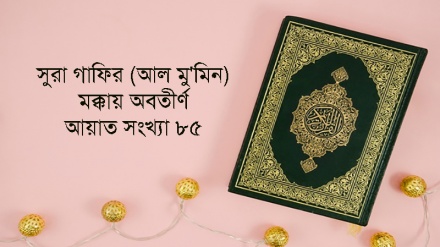 সুরা গাফির (আল মু'মিন)
মক্কায় অবতীর্ণ
আয়াত সংখ্যা ৮৫